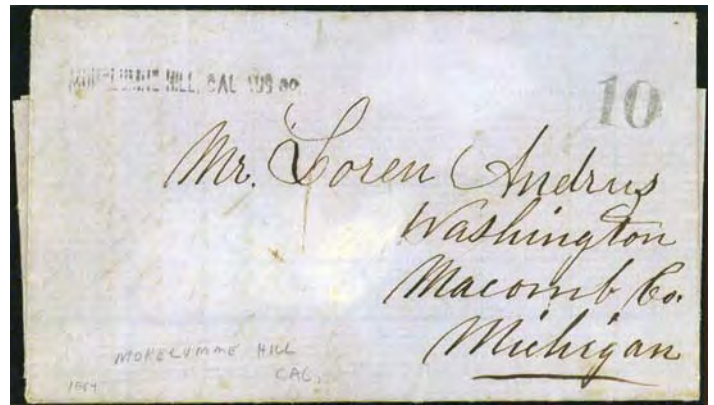 MOKELUMNE HILL, CAL AUG 30
10
Mr. Loren Andrus
Washington
Macomb Co.
Michigan
MOKELUMME HILL
CAL,